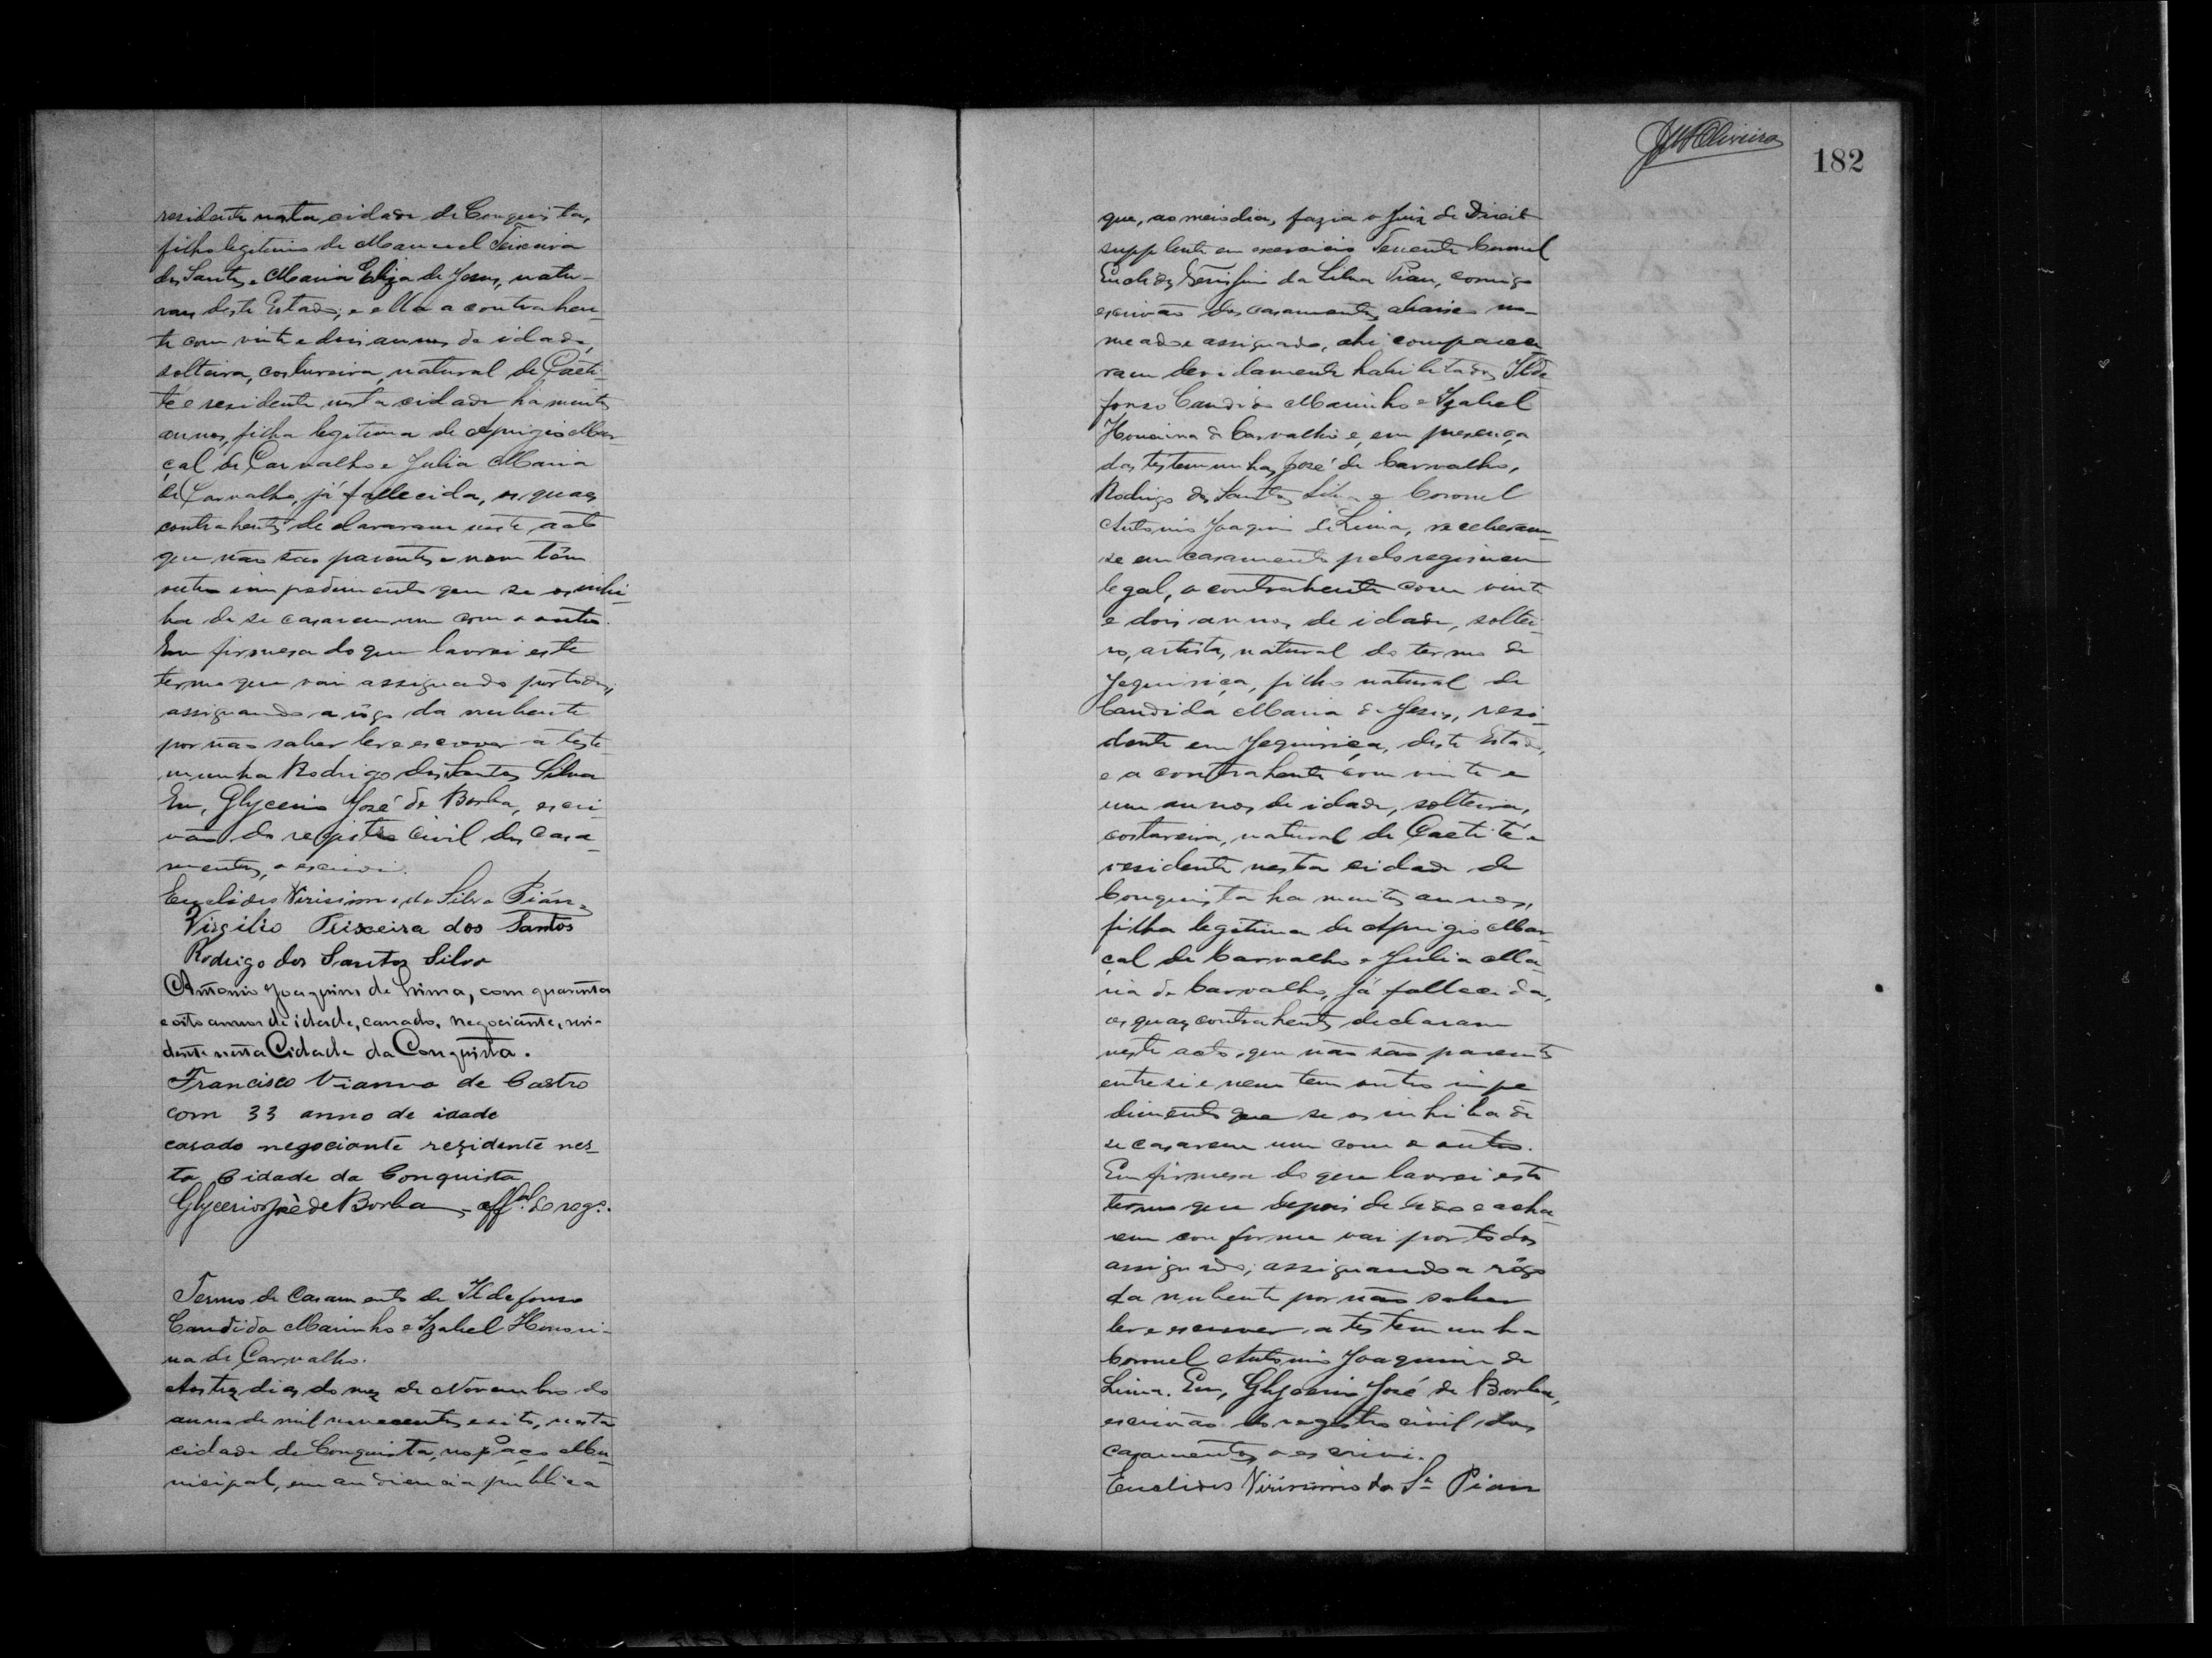 residente nesta cidade de Conquista,
filho legitimo de Manuel Teixeira
dos Santos e Maria Eliza de Jesus, natu-
raes deste Estado; e ella a contrahen-
te com vinte e dois annos de idade,
solteira, costureira, natural de Caeti-
té e residente nesta cidade ha muitos
annos, filha legitima de Aprigio Mar-
çal de Carvalho e Julia Maria
de Carvalho, já fallecida, os quaes
contrahentes declararam neste acto
que não são parentes e nem têm
outro impedimento que se os inhi-
ba de se casarem um com o outro.
Em firmesa do que lavrei este
termo que vai assignado por todos,
assignando a rôgo da nubente
por não saber ler e escrever a teste-
munha Rodrigo dos Santos Silva
Eu, Glycerio José de Borba, escri-
vão do registro civil dos casa-
mentos, o escrivi.
Euclides Virisimo da Silva Pián
Virgilio Teixeira dos Santos
Rodrigo dos Santos Silva
Antonio Joaquim de Lima, com quarenta
e oito annos de idade, casado, negociante, resi-
dente nesta Cidade da Conquista.
Francisco Vianna de Castro
com 33 anno de idade
casado negociante rezidente nes-
ta Cidade da Conquista
Glycerio José de Borba, offal. do rego.
Termo de Casamento de Ildefonso
Candido Marinho e Izabel Honori-
na de Carvalho.
Aos trez dias do mez de Novembro do
anno de mil novecentos e oito, nesta
cidade de Conquista, no paço Mu-
nicipal, em audiencia publica
182
que, ao meio dia, fazia o Juiz de Direito
supplente em exercicio Tenente Coronel
Euclides da Silva Pian, comigo
escrivão dos casamentos abaixo no-
meado e assignado, ahi compaece
ram devidamente habilitados Ilde
fonso Candido Marinho e Izabel
Honorina de Carvalho e, em presença
das testemunhas José de Carvalho,
Rodrigo dos Santos Silva e Coronel
Antonio Joaquim de Lima, receberam-
se em casamento pelo regimen
legal, o contrahente com vinte
e dois annos de idade, soltei-
ro, artista, natural do termo de
Jequiriça, filho natural de
Candida Maria de Jesus, resi-
dente em Jequiriça, deste Estado,
e a contrahente com vinte e
um annos de idade, solteira,
costureira, natural de Caetité e
residente nesta cidade de
Conquista ha muitos annos,
filha legitima de Aprigio Mar-
çal de Carvalho e Julia Ma-
ria de Carvalho, já fallecida,
os quaes contrahentes declaram
neste acto, que não são parentes
entre si e nem tem outro impe
dimento que se os inhiba de
se casarem um com o outro.
Em firmesa do que lavrei este
termo que depois de lido e acha-
rem conforme vai por todos
assignado, assignando a rôgo
da nubente por não saber
ler e escrever a testemunha
Coronel Antonio Joaquim de
Lima. Eu, Glycerio José de Borba,
escrivão do registro civil dos
casamentos o escrivi.
Euclides Virisimio da Sa. Pian